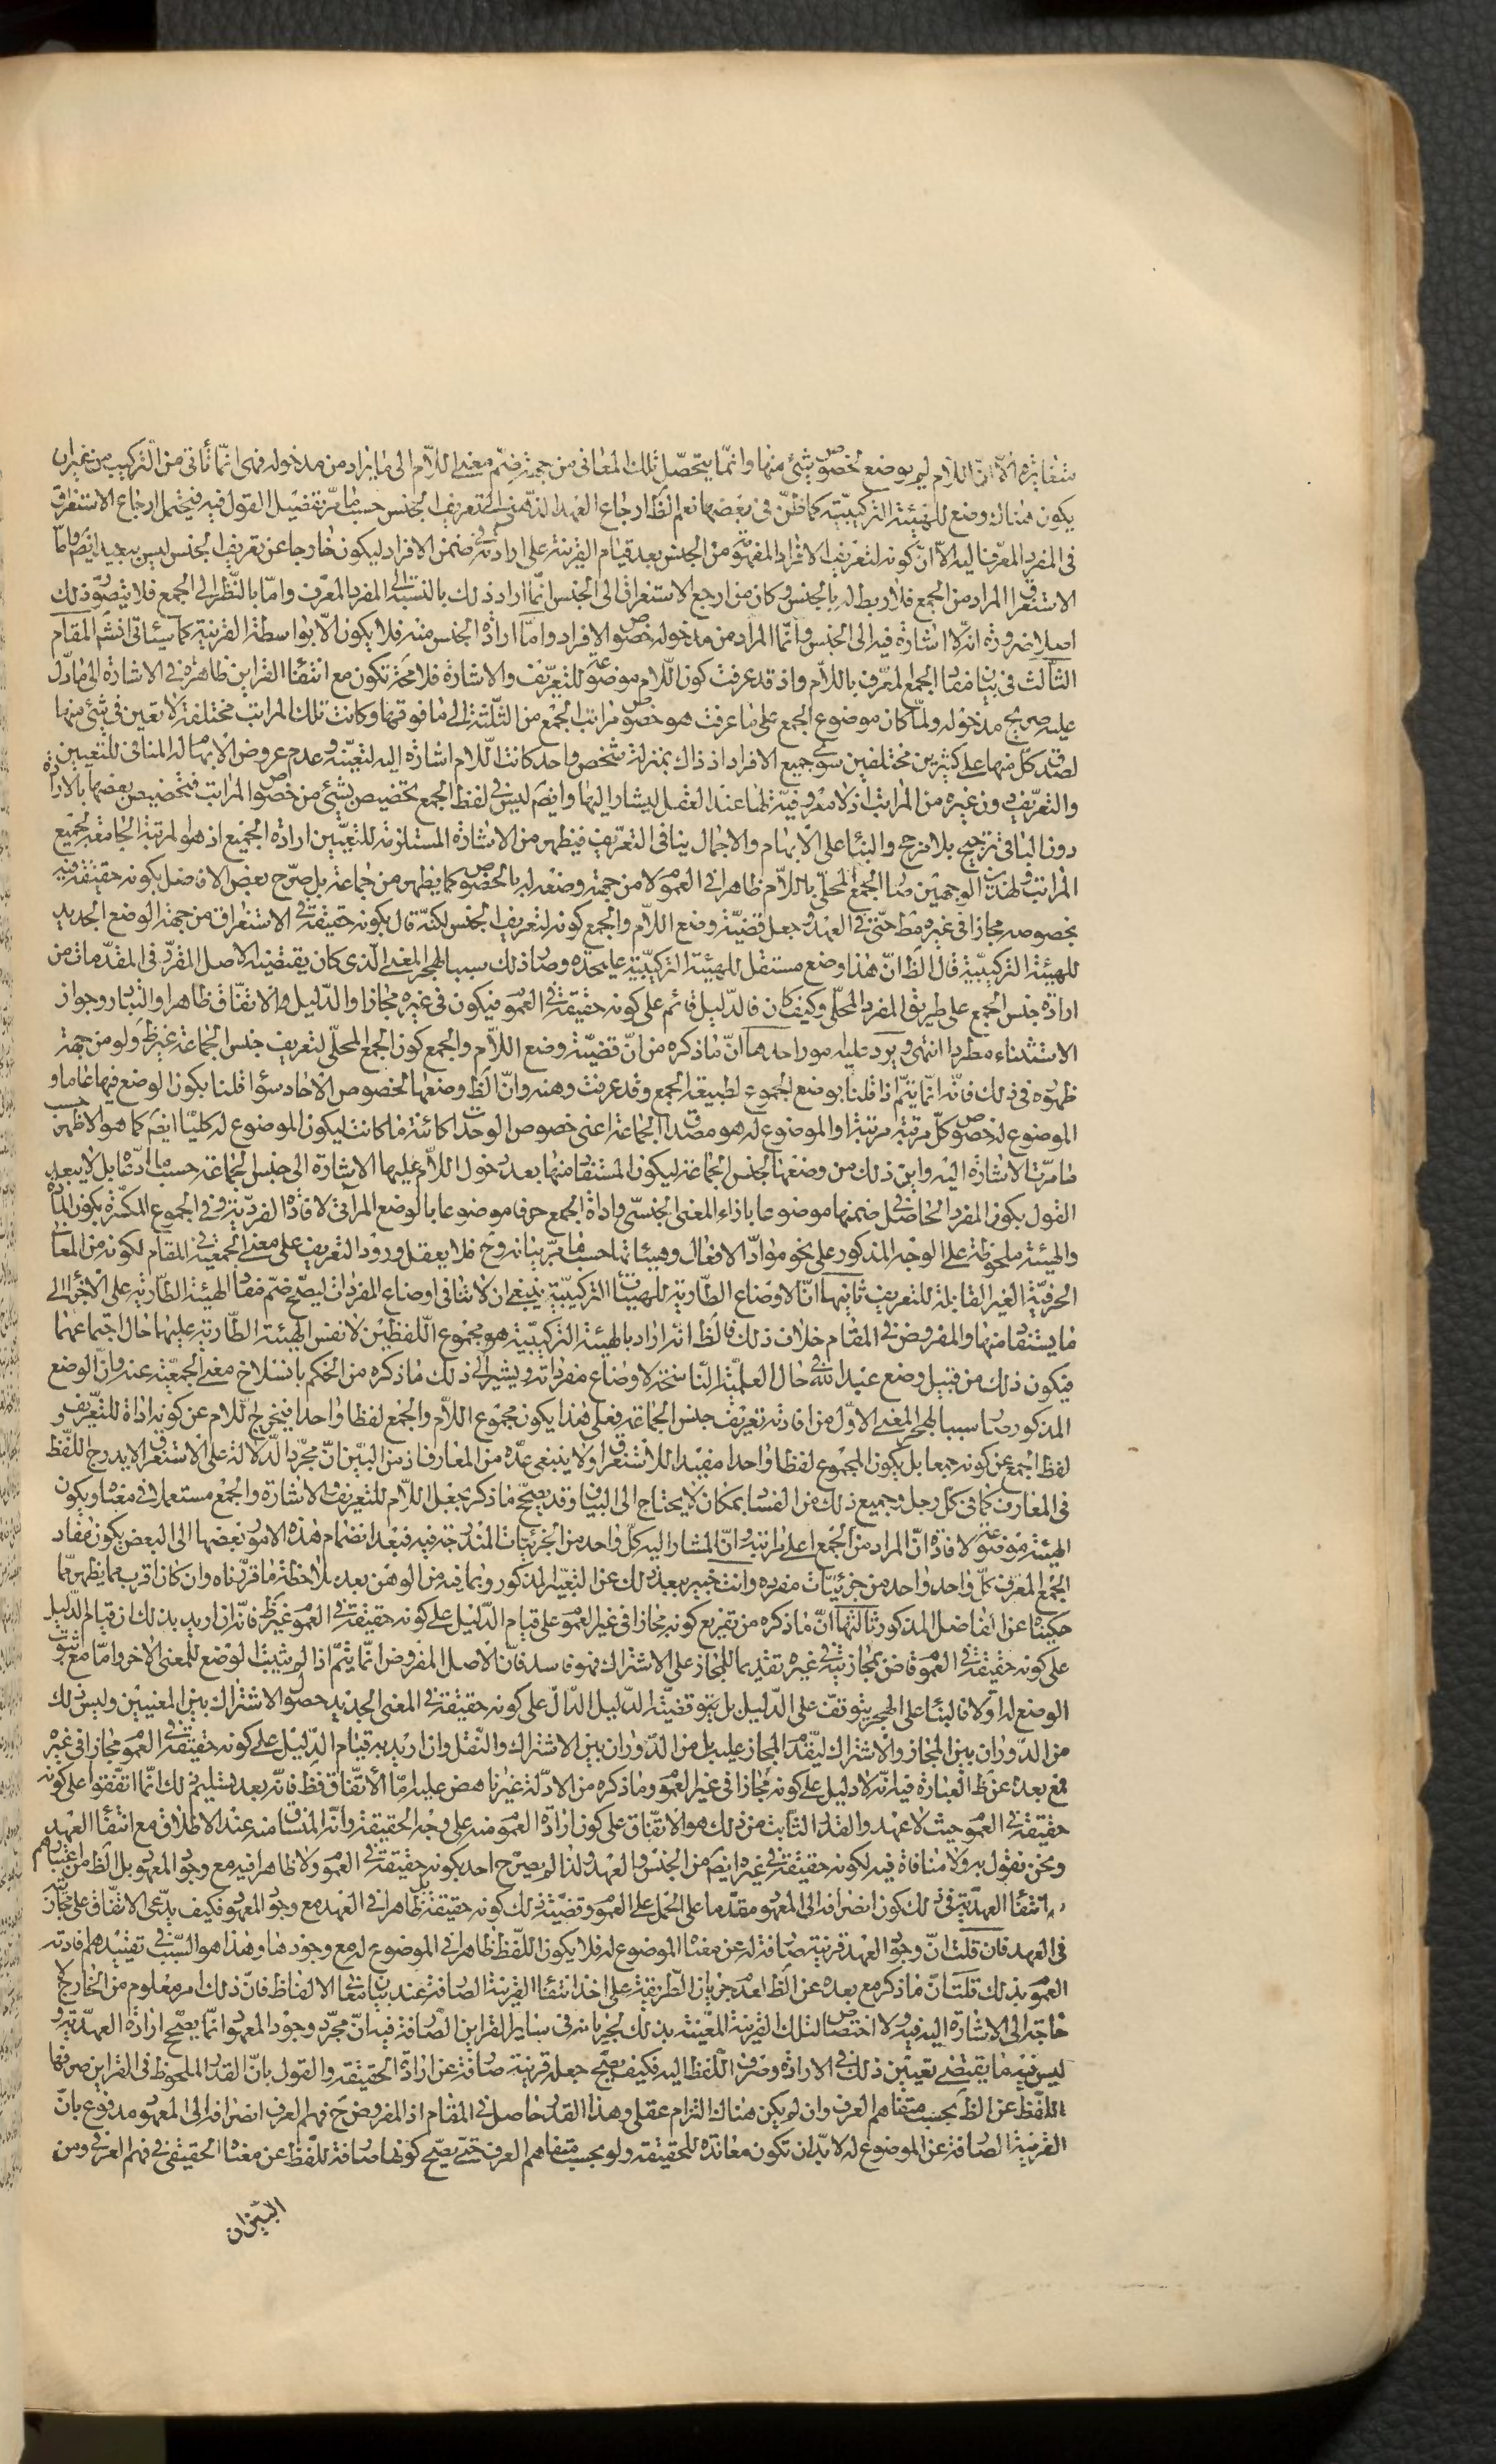 متغايرة الا انّ اللّام لم يوضع لخصوص شئ منها وانّما يتحصّل تلك المعانى من جهة ضمّ معنى اللّام الى ما يراد من مدخوله فهى انّما تأتى من التّركيب من غير ان
يكون هناك وضع للهيئة التركيبيّة كما ظنّ فى بعضها نعم الظ ارجاع العهد الذّهنى الى تعريف الجنس حسبما مرّ تفصيل القول فيه فيحتمل ارجاع الاستغراق
فى المفرد المعرّف اليه الّا انّ كونه لتعريف الافراد المفهوم من الجنس بعد قيام القرينة على ارادته فى ضمن الافراد ليكون خارجا عن تعريف الجنس ليس ببعيد ايضم وامّا
الاستغراق المراد من الجمع فلا ربط له بالجنس وكان من ارجع الاستغراق الى الجنس انّما اراد ذلك بالنسبة الى المفرد المعرّف وامّا بالنّظر الى الجمع فلا يتصوّر ذلك
اصلا ضرورة انّه لا اشارة فيه الى الجنس وانّما المراد من مدخوله خصوص الافراد وامّا ارادة الجنس منه فلا يكون الّا بواسطة القرينة كما سيأتى انش المقام
الثّالث فى بيان مفاد الجمع المعرّف باللّام واذ قد عرفت كون اللّام موضوعة للتعريف والاشارة فلا محة تكون مع انتفاء القراين ظاهرة فى الاشارة الى ما دلّ
عليه صريح مدخوله ولمّا كان موضوع الجمع على ما عرفت هو خصوص مراتب الجمع من الثّلثة الى ما فوقها وكانت تلك المراتب مختلفة لا تعين فى شئ منها
لصدق كلّ منها على كثيرين مختلفين سوى جميع الافراد اذ ذاك بمنزلة شخص واحد كانت اللّام اشارة اليه لتعيّنه وعدم عروض الابهام له المنافى للتعيين
والتّعريف دون غيره من المراتب اذ لا معروفيّة لها عند العقل ليشار اليها وايضم ليس فى لفظ الجمع تخصيص بشئ من خصوص المراتب فتخصيص بعضها بالارادة
دون الباقى ترجيح بلا مرجح والبناء على الابهام والاجمال ينافى التعريف فيظهر من الاشارة المستلزمة للتعيين ارادة الجميع اذ هو المرتبة الجامعة لجميع
المراتب فلهذين الوجهين صار الجمع المحلّى باللّام ظاهرا فى العموم لا من جهة وضعه له بالخصوص كما يظهر من جماعة بل صرّح بعض الافاضل بكونه حقيقة فيه
بخصوصه مجازا فى غيره مط حتّى فى العهد وجعل قضيّة وضع اللّام والجمع كونه لتعريف الجنس لكنّه قال بكونه حقيقة فى الاستغراق من جهة الوضع الجديد
للهيئة التركيبيّة قال الظ انّ هذا وضع مستقل للهيئة التركيبيّة على حدّه وصار ذلك سببا لهجر المعنى الّذى كان يقتضيه الاصل المقرّر فى المقدّمات من
ارادة جنس الجمع على طريق المفرد المحلّى وكيف كان فالدّليل قائم على كونه حقيقة فى العموم فيكون فى غيره مجازا والدّليل والاتفاق ظاهرا والتبادر وجواز
الاستثناء مطردا انتهى ويرد عليه امور احدها انّ ما ذكره من انّ قضيّة وضع اللّام والجمع كون الجمع المحلّى لتعريف جنس الجماعة غير ظ ولو من جهة
ظهوره فى ذلك فانّه انّما يتمّ اذا قلنا بوضع الجموع لطبيعة الجمع وقد عرفت وهنه وانّ الظ وضعها لخصوص الاحاد سواء قلنا بكون الوضع فيها عاما و
الموضوع له خصوص كلّ مرتبة مرتبة او الموضوع له هو مصداق الجماعة اعنى خصوص الوحدات كائنة ما كانت ليكون الموضوع له كليّا ايضم كما هو الاظهر حسب
ما مرّت الاشارة اليه واين ذلك من وضعها لجنس الجماعة ليكون المستفاد منها بعد دخول اللّام عليها الاشارة الى جنس الجماعة حسب ما ادّعاه بل لا يبعد
القول بكون المفرد الحاصل فى ضمنها موضوعا بازاء المعنى الجنسى واداة الجمع حرفا موضوعا بالوضع المرآتى لافادة الفرديّة وفى الجموع المكسّرة يكون المادّة
والهيئة ملحوظة على الوجه المذكور على نحو موادّ الافعال وهيئاتها حسب ما مرّ بيانه وح فلا يعقل ورود التعريف على معنى الجمعية فى المقام لكونه من المعانى
الحرفيّة الغير القابلة للتعريف ثانيها انّ الاوضاع الطّارية للهيئات التركيبيّة ينبغى ان لا تنافى اوضاع المفردات ليصحّ ضمّ مفاد الهيئة الطّارية على الاجزاء الى
ما يستفاد منها والمفروض فى المقام خلاف ذلك فالظ انّه اراد بالهيئة التركيبيّة هو مجموع اللّفظين لا نفس الهيئة الطّارية عليهما حال اجتماعهما
فيكون ذلك من قبيل وضع عبد الله فى حال العلميّة النّاسخة لاوضاع مفرداته ويشير الى ذلك ما ذكره من الحكم بانسلاخ معنى الجمعيّة عنه وانّ الوضع
المذكور صار سببا لهجر المعنى الاوّل من افادته تعريف جنس الجماعة فعلى هذا يكون مجموع اللّام والجمع لفظا واحدا فيخرج اللّام عن كونه اداة للتّعريف و
لفظ الجمع عن كونه جمعا بل يكون المجموع لفظا واحدا مفيدا للاستغراق ولا ينبغى عدّه من المعارف اذ من البيّن انّ مجرّد الدّلالة على الاستغراق لا يدرج اللّفظ
فى المعارف كما فى كلّ رجل وجميع ذلك من الفساد بمكان لا يحتاج الى البيان وقد يصحّح ما ذكر بجعل اللّام للتّعريف والاشارة والجمع مستعملا فى معناه ويكون
الهيئة موضوعة لافادة انّ المراد من الجمع اعلى مراتبه وانّ المشار اليه كلّ واحد من الجزئيات المندرجة فيه فبعد انضمام هذه الامور بعضها الى البعض يكون مفاد
الجمع المعرّف كلّ واحد واحد من جزئيّات مفرده وانت خبير ببعد ذلك عن التعبير المذكور وبما فيه من الوهن بعد ملاحظة ما قرّرناه وان كان اقرب مما يظهر مما
حكيناه عن الفاضل المذكور ثالثها انّ ما ذكره من تفريع كونه مجازا فى غير العموم على قيام الدّليل على كونه حقيقة فى العموم غير ظ فانّه ان اريد بذلك ان قيام الدّليل
على كونه حقيقة فى العموم قاض بمجازيّته فى غيره تقديما للمجاز على الاشتراك فهو فاسد فانّ الاصل المفروض انّما يتمّ اذا لم يثبت الوضع للمعنى الاخر وامّا مع ثبوت
الوضع له اوّلا فالبناء على الهجر يتوقّف على الدّليل بل يتو قضيّة الدّليل الدّالّ على كونه حقيقة فى المعنى الجديد حصول الاشتراك بين المعنيين وليس ذلك
من الدّوران بين المجاز والاشتراك ليقدّم المجاز عليه بل من الدّوران بين الاشتراك والنّقل وان اريد به قيام الدّليل على كونه حقيقة فى العموم مجازا فى غيره
فمع بعده عن ظ العبارة فيه انّه لا دليل على كونه مجازا فى غير العموم وما ذكره من الادلّة غير ناهض عليه امّا الاتّفاق فظ فانّه بعد تسليم ذلك انّما اتّفقوا على كونه
حقيقة فى العموم حيث لا عهد والقدر الثّابت من ذلك هو الاتّفاق على كون ارادة العموم منه على وجه الحقيقة وانّه المنساق منه عند الاطلاق مع انتفاء العهد
ونحن نقول به ولا منافاة فيه لكونه حقيقة فى غيره ايضم من الجنس والعهد ولذا لم يصرّح احد بكونه حقيقة فى العموم ولا ظاهرا فيه مع وجود المعهود بل الظ من اعتبارهم
انتفاء العهديّة فى ذلك كون انصرافه الى المعهود مقدّما على الحمل على العموم وقضيّة ذلك كونه حقيقة بل ظاهرا فى العهد مع وجود المعهود فكيف يدّعى الاتّفاق على مجازيته
فى العهد فان قلت انّ وجود العهد قرينة صارفة له عن معناه الموضوع له فلا يكون اللّفظ ظاهرا فى الموضوع له مع وجودها وهذا هو السّبب فى تقييدهم افادته
العموم بذلك قلت انّ ما ذكر مع بعده عن الظ لعدم جريان الطّريقة على اخذ انتفاء القرينة الصّارفة عند بيان معانى الالفاظ فانّ ذلك امر معلوم من الخارج لا
حاجة الى الاشارة اليه فيه ولا اختصاص لتلك القرينة المعيّنة بذلك لجريانه فى ساير القراين الصّارفة فيه انّ مجرّد وجود المعهود انّما يصحّح ارادة العهديّة و
ليس فيه ما يقتضى تعيين ذلك فى الارادة وصرف اللّفظ اليه فكيف يصحّ جعله قرينة صارفة عن ارادة الحقيقة والقول بانّ القدر الملحوظ فى القراين صرفها
اللّفظ عن الظ بحسب متفاهم العرف وان لم يكن هناك التزام عقلى وهذا القدر حاصل فى المقام اذ المفروض ح فهم العرف انصرافه الى المعهود مدفوع بانّ
القرينة الصّارفة عن الموضوع له لا بدّ ان تكون معاندة للحقيقة ولو بحسب متفاهم العرف حتّى يصحّ كونها صارفة للّفظ عن معناه الحقيقى فى فهم العرف ومن
البيّن ان